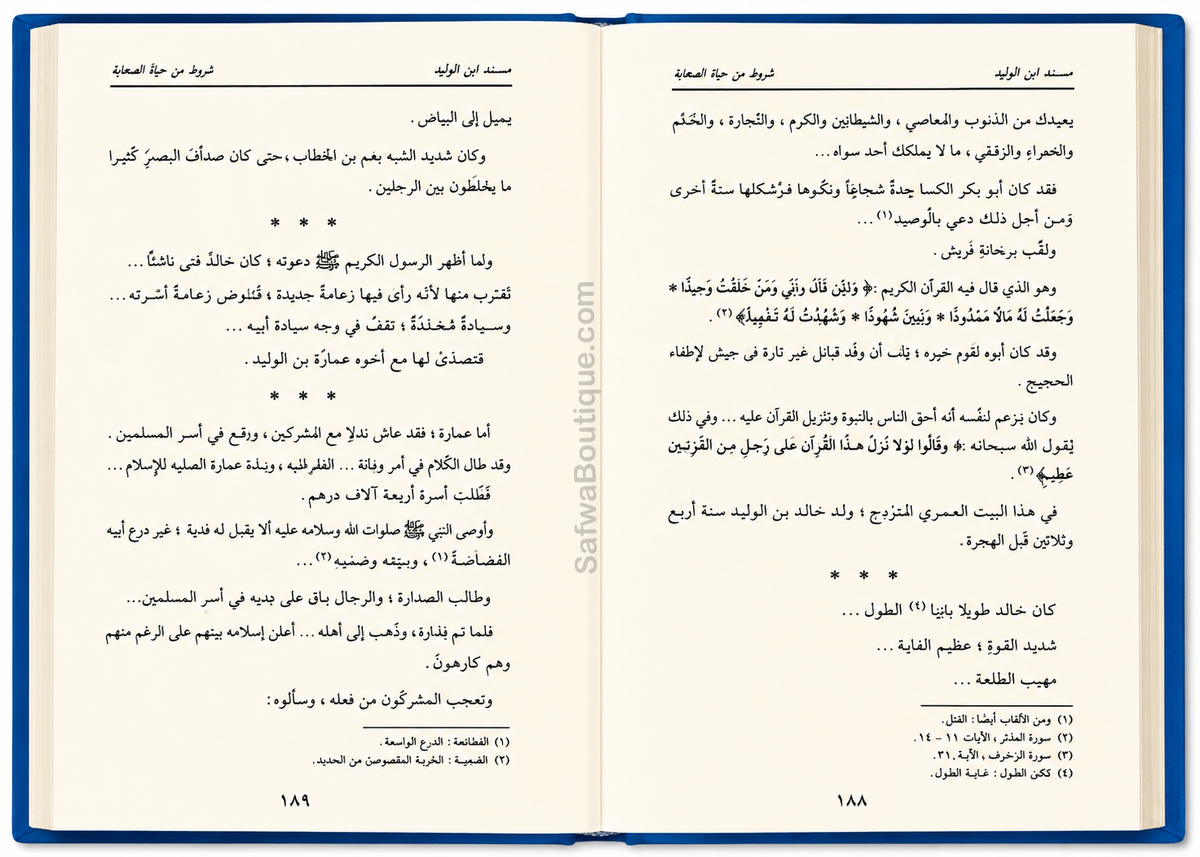 مسند ابن الوليد
شروط من حياة الصعابة
يعيدك من الذنوب والمعاصي ، والشيطانين والكرم ، والتّجارة ، والخَدَّم
والخمراءِ والزقـقي ، ما لا يملكك أحد سواه ...
فقد كان أبـو بكر الكسا جِدةً شجاعاً ونكّوها فـرْشكلها سنةً أخرى
وَمـن أجل ذلـك دعي بالْوصيدِ (١) ...
ولقّب برخانةِ قَريش .
وهو الذي قال فيه القرآن الكريم :﴿ وَلَئِن قَالَ وَنَنّي وَمَنْ خَلَقْتُ وَحِيدًا *
وَجَعَلْتُ لَهُ مَالًا مَمْدُودًا * وَنَبِينَ شُهُودًا * وَشُهُدْتُ لَهُ تَـفْهِيلاً﴾ (٢) .
وقد كان أبوه لقَوم خيره ؛ أن وفّد قبانل غير تارة فى جيش لإطفاء
الحجيج .
وكان يَـزعم لنفْسه أنه أحق الناس بالنبوة وتنْزيل القرآن عليه ... وفي ذلك
يْقـول الله سبـحانه :﴿ وقَالُوا لوْلا نُزلّ هـذَا الْقُرآن عَلى رَجلٍ مِن القَرْيَتـين
عَظِيمٍ﴾ (٣) .
في هذا البيت العـمري المتـرّدج ؛ ولد خالـد بن الوليـد سنـة أربـع
وثلاثين قَبل الهجرة .
* * *
كان خالد طويلا بائنا (٤) الطول ...
شديد القـوةِ ؛ عظيم الفايـة ...
مهيب الطلعة ...
(١) ومن الألقاب أيضًا : الفتل.
(٢) سورة المدثر ، الآيات ١١ – ١٤.
(٣) سورة الزخرف ، الآية ٣١.
(٤) ككن الطول : غـايـة الطول.
١٨٨
مسند ابن الوليد
شروط من حياة الصعابة
يميل إلى البياض .
وكان شديد الشبه بغم بن الخطاب ،حتى كان صدأفَ البصرِ كّثيـرا
ما يخْلَطَون بين الرجلين .
* * *
ولما أظهر الرسول الكريم ﷺ دعوته ؛ كان خالدٌ فتى ناشئًا ...
تَقترب منها لأنّه رأى فيها زعامةً جديدة ؛ قُتلوض زعامـةً أسْرته ...
وسـيادةً مُخـنـدَةً ؛ تقفْ في وجه سيادة أبيه ...
فتصدّىْ لها مع أخوه عمارَة بن الوليد .
* * *
أما عمارة ؛ فقد عاش ندلاٍ مع المشركين ، ورقـع في أسـر المسلمين .
وقد طال الكّلام في أمر وفانة ... الفلرلهبه ، ونـذة عمارة الصليه للإسلام ...
فَظّلتٍ أسرة أريعة آلاف درهم .
وأوصى النبي ﷺ صلوات الله وسلامه عليه ألا يقبل له فدية ؛ غير درع أبيه
الفضـاضـةً (١) ، وبيتـقه وضمْيـهِ (٢) ...
وطالب الصدارة ؛ والرجال بـاق على دِديه في أسر المسلمين...
فلما تم فِذارة، وذَهب إلى أهله ... أعلن إسلامه بينهم على الرغم منهم
وهم كارهونَ .
وتعجب المشركّون من فعله ، وسألوه :
(١) الفطانعة : الدرع الواسعة .
(٢) الضمية : الخربة المقصوصن من الحديد.
١٨٩
SafwaBoutique.com